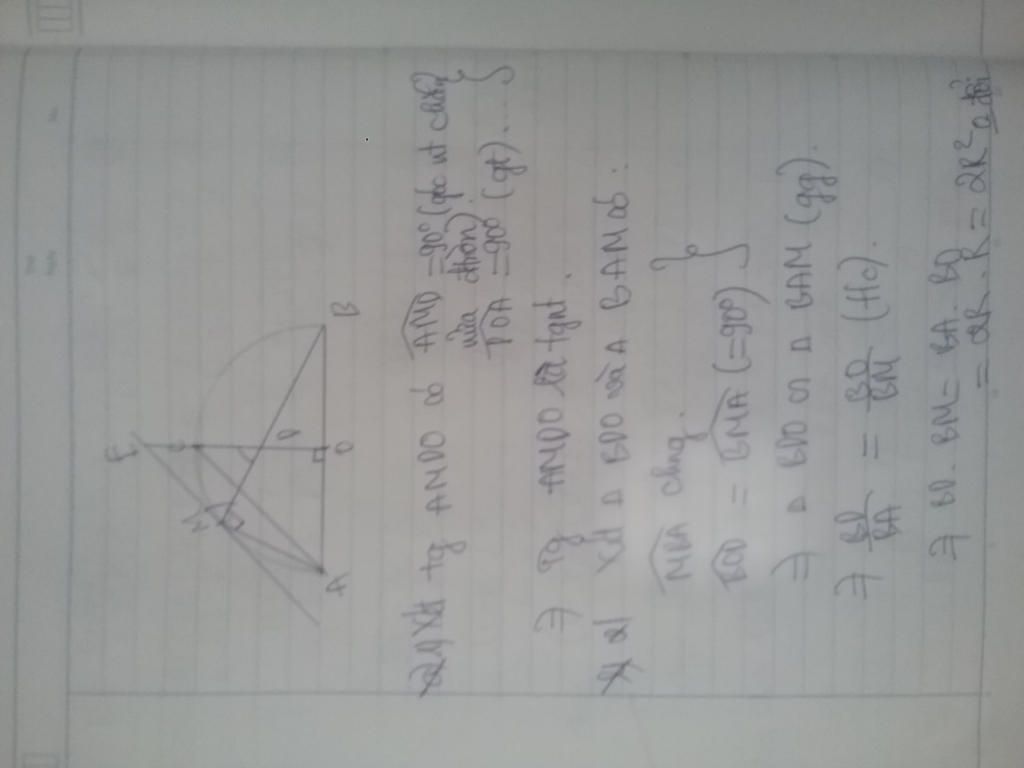 E
M
C
D
A
O
B
xét tg AMDO có $\widehat{AMD}$ = 90° (góc nt chắn
nửa đtròn)
$\widehat{DOA}$ = 90° (gt)....
⇒ Tg AMDO là tgnt.
Xét Δ BDO và Δ BAM có:
$\widehat{MBA}$ chung.
$\widehat{BOD}$ = $\widehat{BMA}$ (=90°)
⇒ Δ BDO ∽ Δ BAM (gg).
⇒ $\frac{BD}{BA}$ = $\frac{BO}{BM}$
⇒ BD. BM = BA. BO
= 2R. R = 2R²